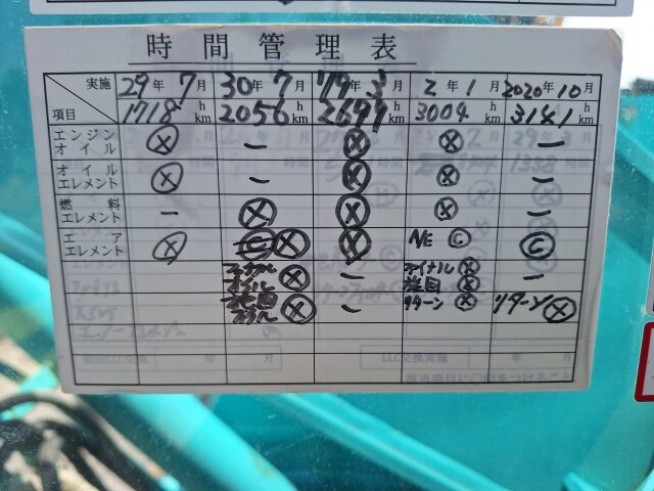 時間管理表
実施 29年 7月 30年 7月 '19 3月 2年 1月 2020年 10月
項目 1718 h km 2056 h km h km 3004 h km 3141 h km
エンジンオイル ⊗ － ⊗ ⊗ －
オイルエレメント ⊗ － ⊗ ⊗ －
燃料エレメント － ⊗ ⊗ ⊗ －
エアエレメント ⊗ Ⓒ ⊗ ⊗ A/E Ⓒ Ⓒ
ファイナルオイル ⊗ － ファイナル ⊗ －
旋回 ⊗
旋回オイル ⊗ － リターン ⊗ リターン ⊗